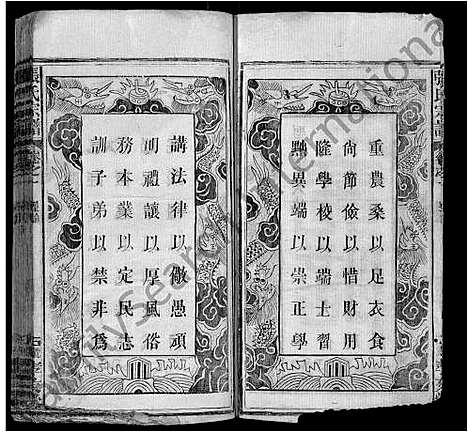 重農桑以足衣食
尚節儉以惜財用
隆學校以端士習
黜異端以崇正學
講法律以儆愚頑
明禮讓以厚風俗
務本業以定民志
訓子弟以禁非為
張氏宗譜